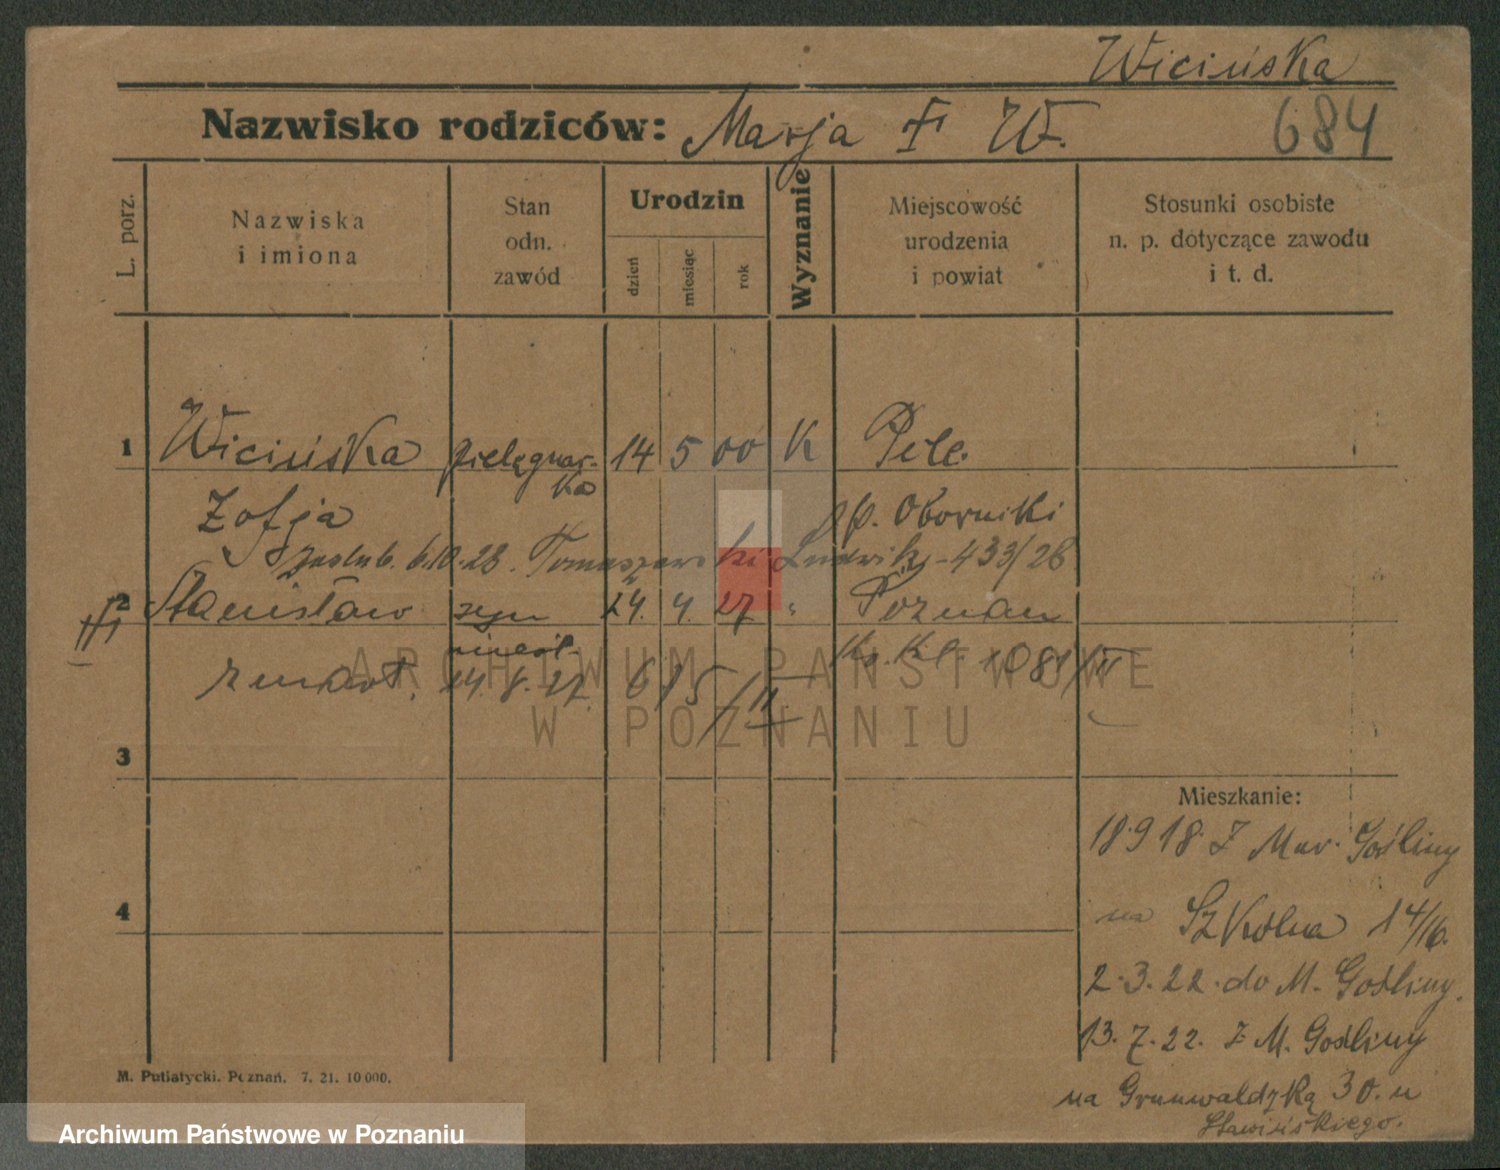 Wicińska
Nazwisko rodziców: Marja W.
684
L. porz.
Nazwiska
i imiona
Stan
odn.
zawód
Urodzin
dzień
miesiąc
rok
Wyznanie
Miejscowość
urodzenia
i powiat
Stosunki osobiste
n. p. dotyczące zawodu
i t. d.
1 Wicińska pielęgnar- 14 5 00 K
ka
Zofja p. Oborniki
zaślub. 6.10.28. Tomaszewski Ludwik - 433/28
2 Stanisław syn 24. 4. 27 " Poznań
nieśl.
zmarł. 14.8.27. 615/II Ks. Kl. 1081/II
3
Mieszkanie:
18.9 18. Z Mur. Gośliny
4
na Szkolna 14/16.
2.3.22. do M. Gośliny.
13.7.22. Z M. Gośliny
na Grunwaldzką 30. u
Sławińskiego.
M. Putiatycki. Poznań. 7. 21. 10 000.
ARCHIWUM PAŃSTWOWE
W POZNANIU
Archiwum Państwowe w Poznaniu